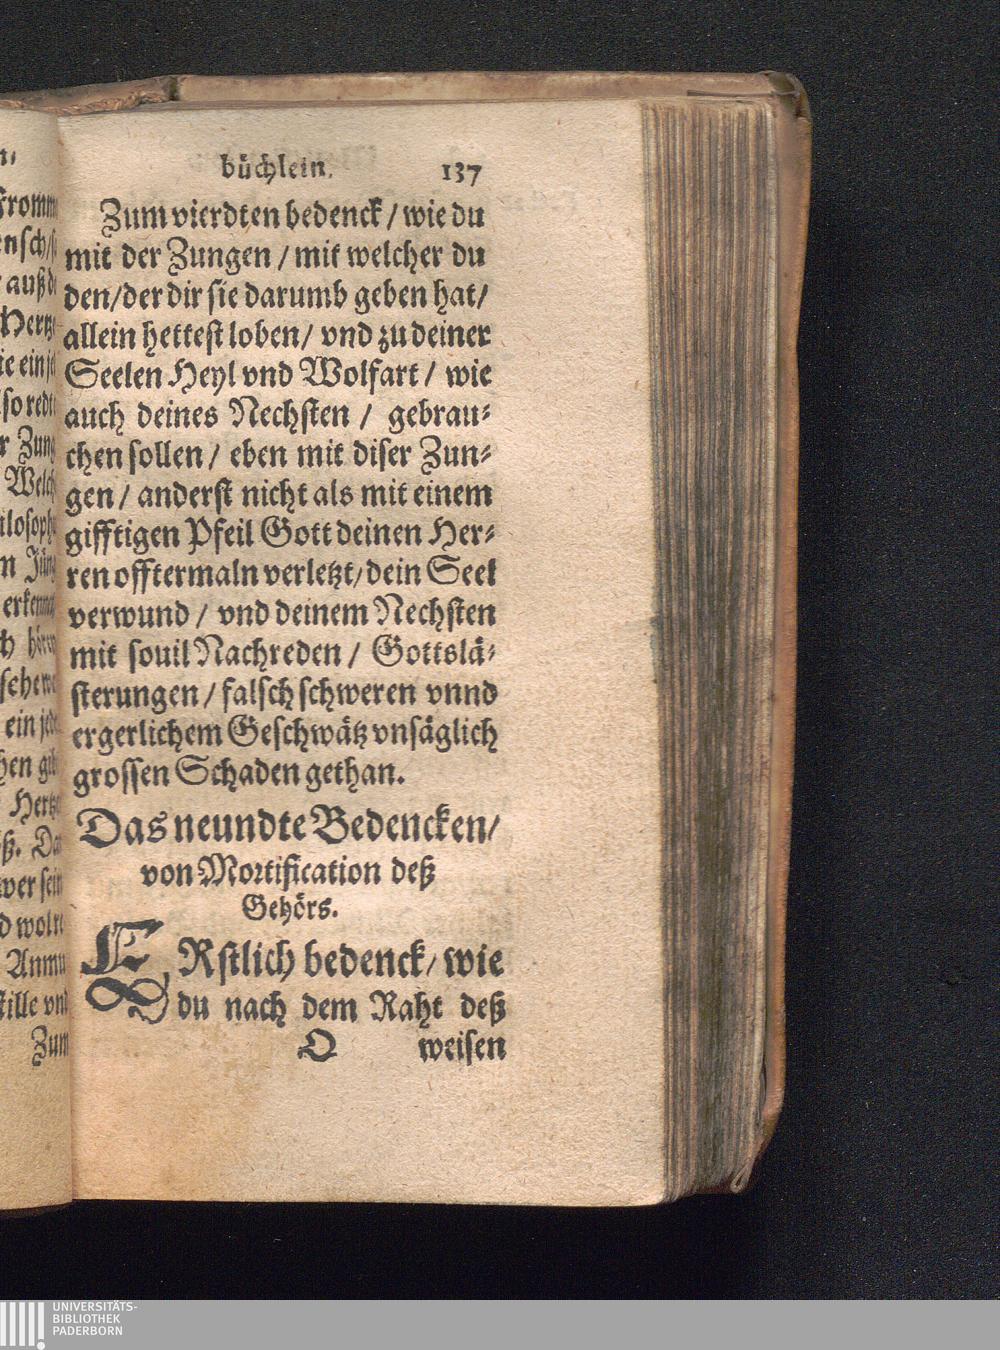 büchlein. 137
Zum vierdten bedenck / wie du
mit der Zungen / mit welcher du
den / der dir sie darumb geben hat /
allein hettest loben / vnd zu deiner
Seelen Heyl vnd Wolfart / wie
auch deines Nechsten / gebrau-
chen sollen / eben mit diser Zun-
gen / anderst nicht als mit einem
gifftigen Pfeil Gott deinen Her-
ren offtermaln verletzt / dein Seel
verwund / vnd deinem Nechsten
mit souil Nachreden / Gottslä-
sterungen / falsch schweren vnnd
ergerlichem Geschwätz vnsäglich
grossen Schaden gethan.
Das neundte Bedencken /
von Mortification deß
Gehörs.
ERstlich bedenck / wie
du nach dem Raht deß
O weisen
ein
Zung
Anmu
Zum
UNIVERSITÄTS-
BIBLIOTHEK
PADERBORN